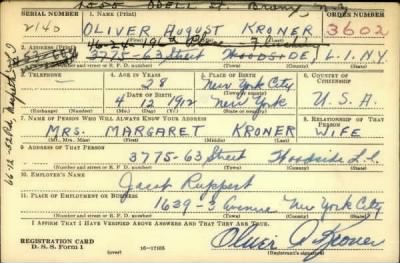 1555 ODELL St. Bronx, N.Y.
SERIAL NUMBER 1. NAME (Print) ORDER NUMBER
2140 OLIVER AUGUST KRONER 3602
(First) (Middle) (Last)
2. ADDRESS (Print)
3775-63 Street WOODSIDE, L.I. N.Y.
(Number and street or R. F. D. number) (Town) (County) (State)
3. TELEPHONE 4. AGE IN YEARS 5. PLACE OF BIRTH 6. COUNTRY OF CITIZENSHIP
28 New York City
DATE OF BIRTH (Town or county)
4 12 1912 New York U.S.A.
(Exchange) (Number) (Mo.) (Day) (Yr.) (State or country)
7. NAME OF PERSON WHO WILL ALWAYS KNOW YOUR ADDRESS 8. RELATIONSHIP OF THAT PERSON
MRS. MARGARET KRONER WIFE
(Mr., Mrs., Miss) (First) (Middle) (Last)
9. ADDRESS OF THAT PERSON
3775-63 Street Woodside L.I.
(Number and street or R. F. D. number) (Town) (County) (State)
10. EMPLOYER'S NAME
Jacob Ruppert
11. PLACE OF EMPLOYMENT OR BUSINESS
1639-3 Avenue New York City
(Number and street or R. F. D. number) (Town) (County) (State)
I AFFIRM THAT I HAVE VERIFIED ABOVE ANSWERS AND THAT THEY ARE TRUE.
REGISTRATION CARD
D. S. S. Form 1 (over) 16-17105 Oliver A. Kroner
(Registrant's signature)